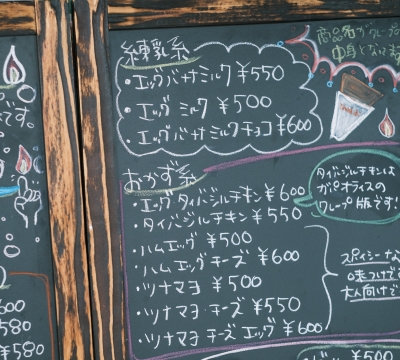 練乳系
・エッグバナナミルク ¥550
・エッグ ミルク ¥500
・エッグバナナミルクチョコ ¥600
商品名がクレープの
中身となってます
おかず系
・エッグタイバジルチキン ¥600
・タイバジルチキン ¥550
・ハムエッグ ¥500
・ハムエッグチーズ ¥600
・ツナマヨ ¥500
・ツナマヨ・チーズ ¥550
・ツナマヨ チーズ エッグ ¥600
タイバジルチキンは
ガパオライスの
クレープ版です!
スパイシーな
味つけで
大人向けで
¥500
¥600
600
580
¥580